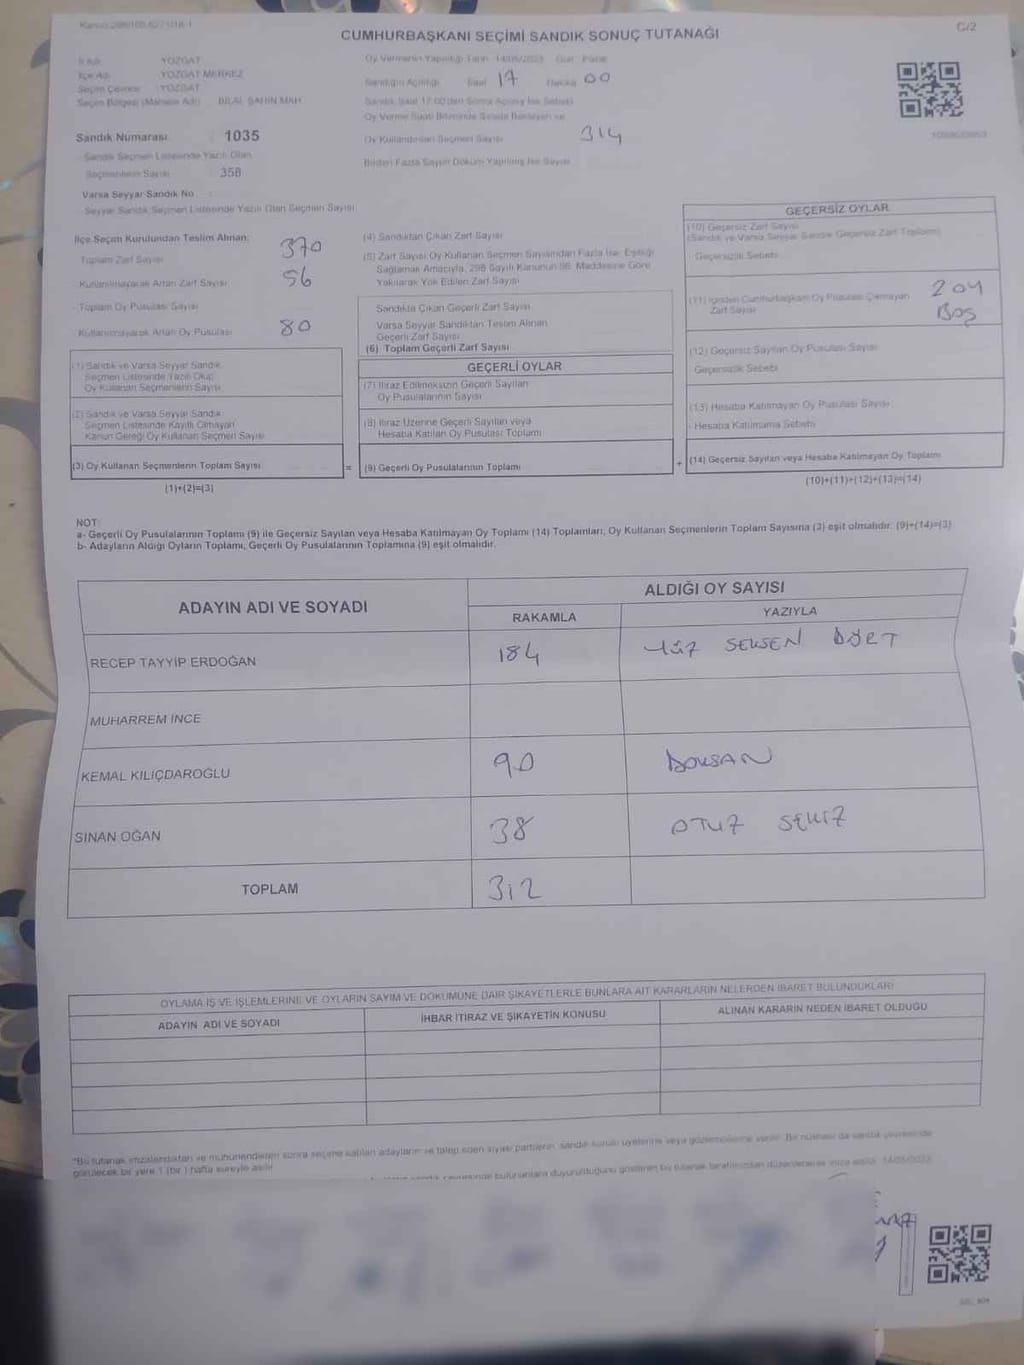 C/2
CUMHURBAŞKANI SEÇİMİ SANDIK SONUÇ TUTANAĞI
İl Adı YOZGAT
İlçe Adı YOZGAT MERKEZ
Seçim Çevresi YOZGAT
Seçim Bölgesi (Mahalle Adı) BİLAL ŞAHİN MAH.
Oy Vermenin Yapıldığı Tarih 14/05/2023 Gün Pazar
Sandığın Açıldığı Saat 17 Dakika 00
Sandık Saat 17:00'den Sonra Açılmış İse Sebebi
Oy Verme Saati Bitiminde Sırada Bekleyen ve
Oy Kullandırılan Seçmen Sayısı 314
Birden Fazla Sayım Döküm Yapılmış İse Sayısı
Sandık Numarası 1035
Sandık Seçmen Listesinde Yazılı Olan
Seçmenlerin Sayısı 358
Varsa Seyyar Sandık No
Seyyar Sandık Seçmen Listesinde Yazılı Olan Seçmen Sayısı
İlçe Seçim Kurulundan Teslim Alınan:
Toplam Zarf Sayısı 370
Kullanılmayarak Artan Zarf Sayısı 56
Toplam Oy Pusulası Sayısı
Kullanılmayarak Artan Oy Pusulası 80
(1) Sandık ve Varsa Seyyar Sandık
Seçmen Listesinde Yazılı Olup
Oy Kullanan Seçmenlerin Sayısı
(2) Sandık ve Varsa Seyyar Sandık
Seçmen Listesinde Kayıtlı Olmayan
Kanun Gereği Oy Kullanan Seçmen Sayısı
(3) Oy Kullanan Seçmenlerin Toplam Sayısı
(1)+(2)=(3)
(4) Sandıktan Çıkan Zarf Sayısı
(5) Zarf Sayısı Oy Kullanan Seçmen Sayısından Fazla İse, Eşitliği
Sağlamak Amacıyla, 298 Sayılı Kanunun 98. Maddesine Göre
Yakılarak Yok Edilen Zarf Sayısı
Sandıkta Çıkan Geçerli Zarf Sayısı
Varsa Seyyar Sandıktan Teslim Alınan
Geçerli Zarf Sayısı
(6) Toplam Geçerli Zarf Sayısı
GEÇERLİ OYLAR
(7) İtiraz Edilmeksizin Geçerli Sayılan
Oy Pusulalarının Sayısı
(8) İtiraz Üzerine Geçerli Sayılan veya
Hesaba Katılan Oy Pusulası Toplamı
= (9) Geçerli Oy Pusulalarının Toplamı
GEÇERSİZ OYLAR
(10) Geçersiz Zarf Sayısı
(Sandık ve Varsa Seyyar Sandık Geçersiz Zarf Toplamı)
Geçersizlik Sebebi
(11) İçinden Cumhurbaşkanı Oy Pusulası Çıkmayan
Zarf Sayısı
2 oy
Boş
(12) Geçersiz Sayılan Oy Pusulası Sayısı
Geçersizlik Sebebi
(13) Hesaba Katılmayan Oy Pusulası Sayısı
Hesaba Katılmama Sebebi
+ (14) Geçersiz Sayılan veya Hesaba Katılmayan Oy Toplamı
(10)+(11)+(12)+(13)=(14)
NOT:
a- Geçerli Oy Pusulalarının Toplamı (9) ile Geçersiz Sayılan veya Hesaba Katılmayan Oy Toplamı (14) Toplamları, Oy Kullanan Seçmenlerin Toplam Sayısına (3) eşit olmalıdır. (9)+(14)=(3)
b- Adayların Aldığı Oyların Toplamı, Geçerli Oy Pusulalarının Toplamına (9) eşit olmalıdır.
ADAYIN ADI VE SOYADI ALDIĞI OY SAYISI
RAKAMLA YAZIYLA
RECEP TAYYİP ERDOĞAN 184 YÜZ SEKSEN DÖRT
MUHARREM İNCE
KEMAL KILIÇDAROĞLU 90 DOKSAN
SİNAN OĞAN 38 OTUZ SEKİZ
TOPLAM 312
OYLAMA İŞ VE İŞLEMLERİNE VE OYLARIN SAYIM VE DÖKÜMÜNE DAİR ŞİKAYETLERLE BUNLARA AİT KARARLARIN NELERDEN İBARET BULUNDUKLARI
ADAYIN ADI VE SOYADI İHBAR İTİRAZ VE ŞİKAYETİN KONUSU ALINAN KARARIN NEDEN İBARET OLDUĞU
"Bu tutanak imzalandıktan ve mühürlendikten sonra seçime katılan adayların ve talep eden siyasi partilerin, sandık kurulu üyelerine veya gözlemcilerine verilir. Bir nüshası da sandık çevresinde
görülecek bir yere 1 (bir) hafta süreyle asılır.
bulunanlara duyurulduğunu gösteren bu tutanak tarafımızdan düzenlenerek imza edildi. 14/05/2023